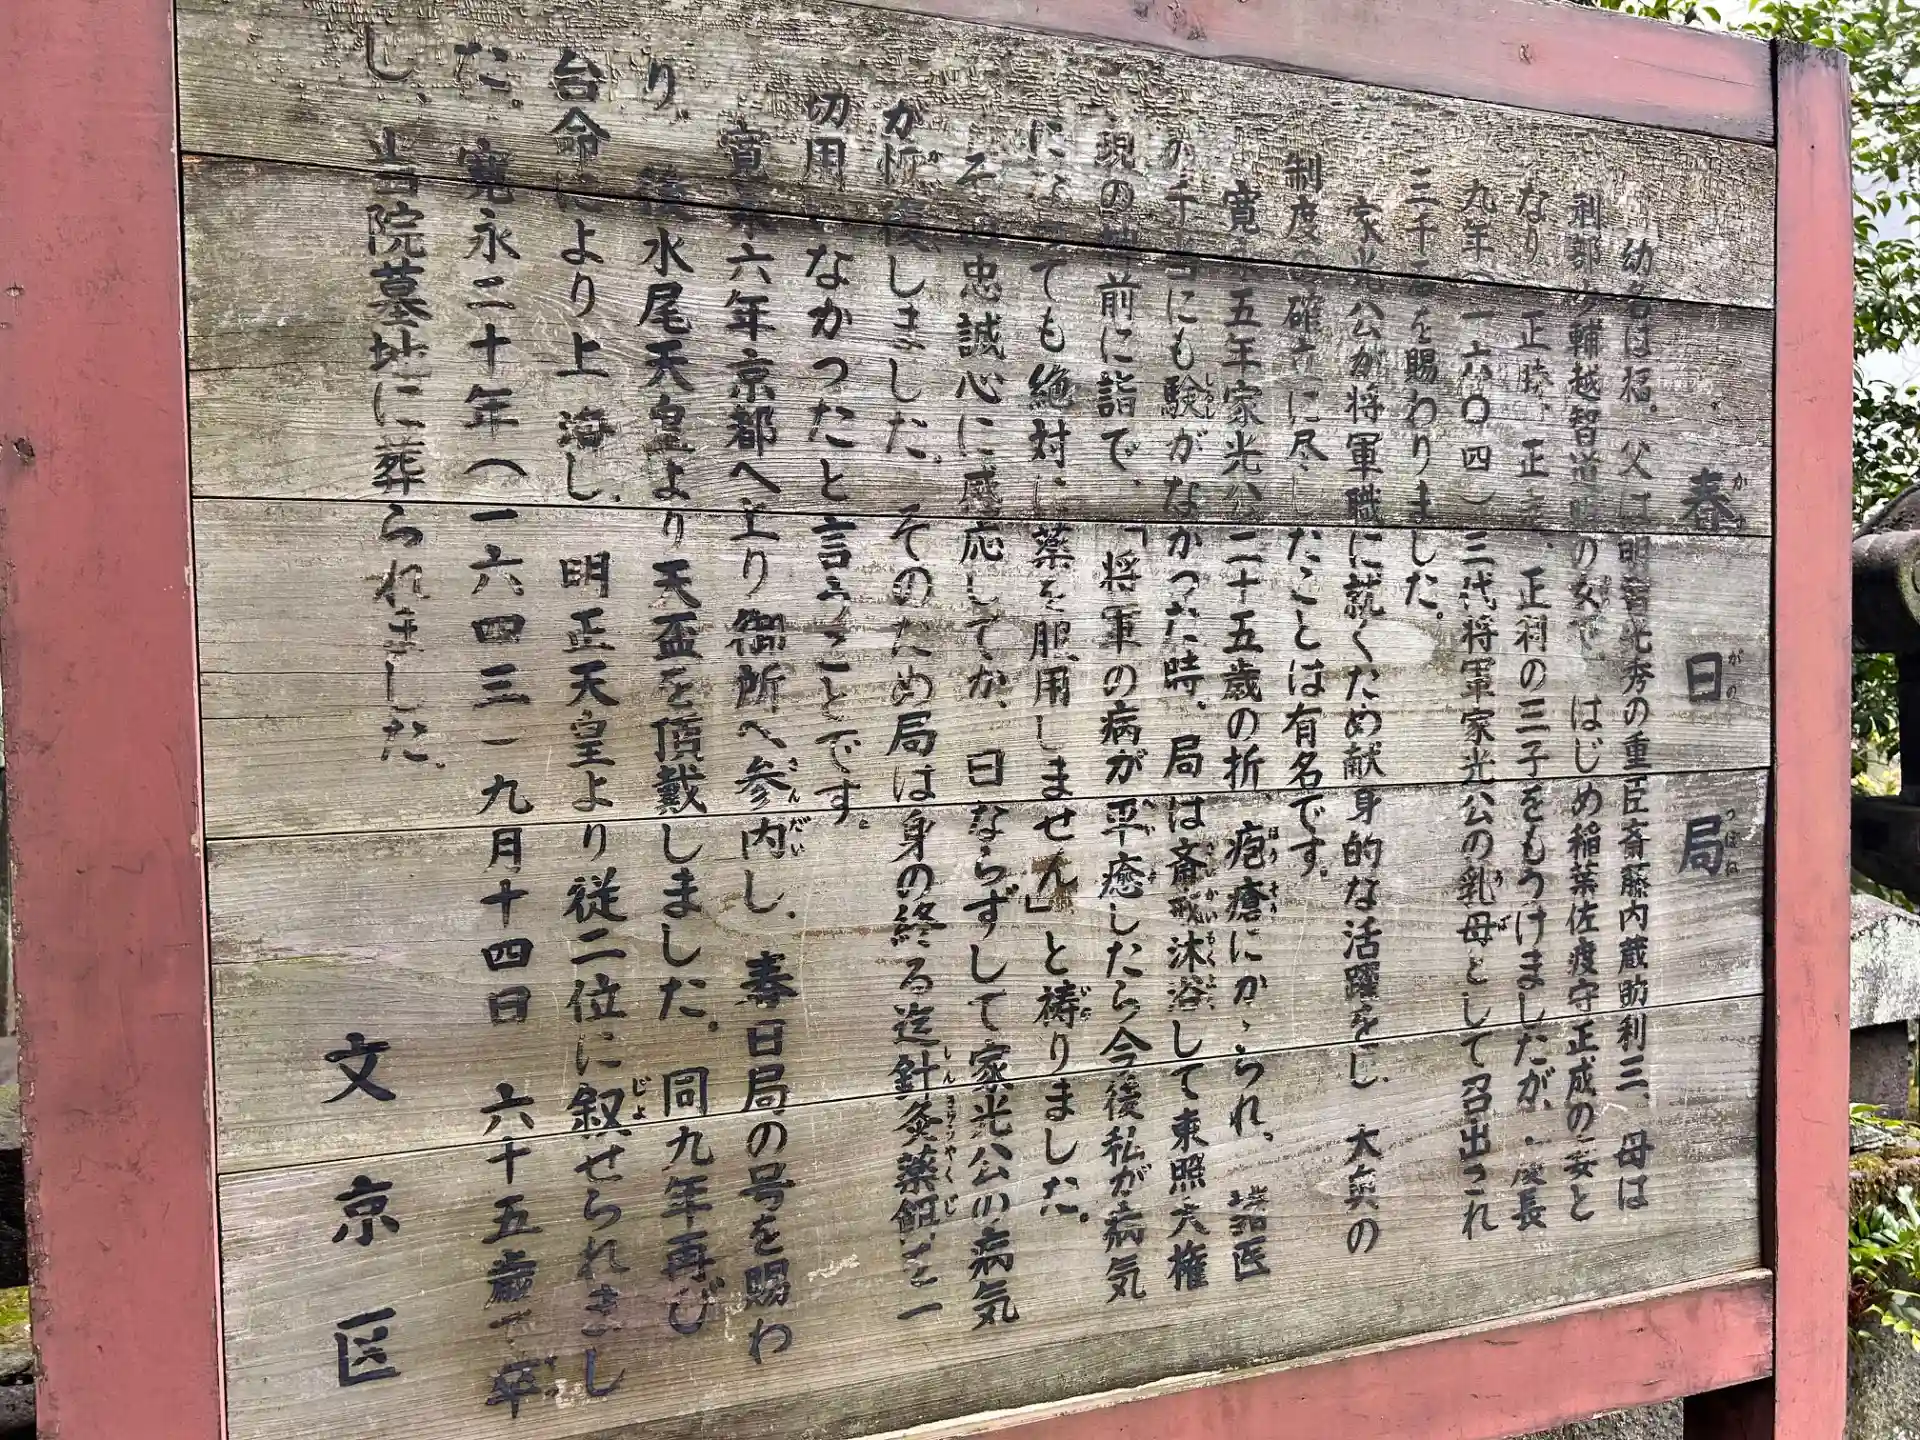 春日局
かすがのつぼね
幼名は福。父は明智光秀の重臣斎藤内蔵助利三、母は
刑部少輔越智道明の女で、はじめ稲葉佐渡守正成の妾と
なり、正勝、正、正利の三子をもうけましたが、慶長
九年(一六〇四)三代将軍家光公の乳母として召出され
うば
三千石を賜わりました。
家光公が将軍職に就くため献身的な活躍をし、大奥の
制度の確立に尽したことは有名です。
寛永五年家光公二十五歳の折、疱瘡にかゝられ、諸医
ほうそう
の千当にも験がなかった時、局は斎戒沐浴して東照大権
しるし さいかいもくよく
現の神前に詣で、「将軍の病が平癒したら今後私が病気
になっても絶対に薬を服用しません」と祷りました。
その忠誠心に感応してか、日ならずして家光公の病気
が恢復しました。そのため局は身の終る迄針灸薬餌を一
しんきゅうやくじ
切用いなかったと言うことです。
寛永六年京都へ上り御所へ参内し、春日局の号を賜わ
さんだい
り、後水尾天皇より天盃を頂戴しました。同九年再び
台命により上洛し、明正天皇より従二位に叙せられまし
じょ
た。寛永二十年(一六四三)九月十四日 六十五歳で卒
し、当院墓地に葬られました。
文京区